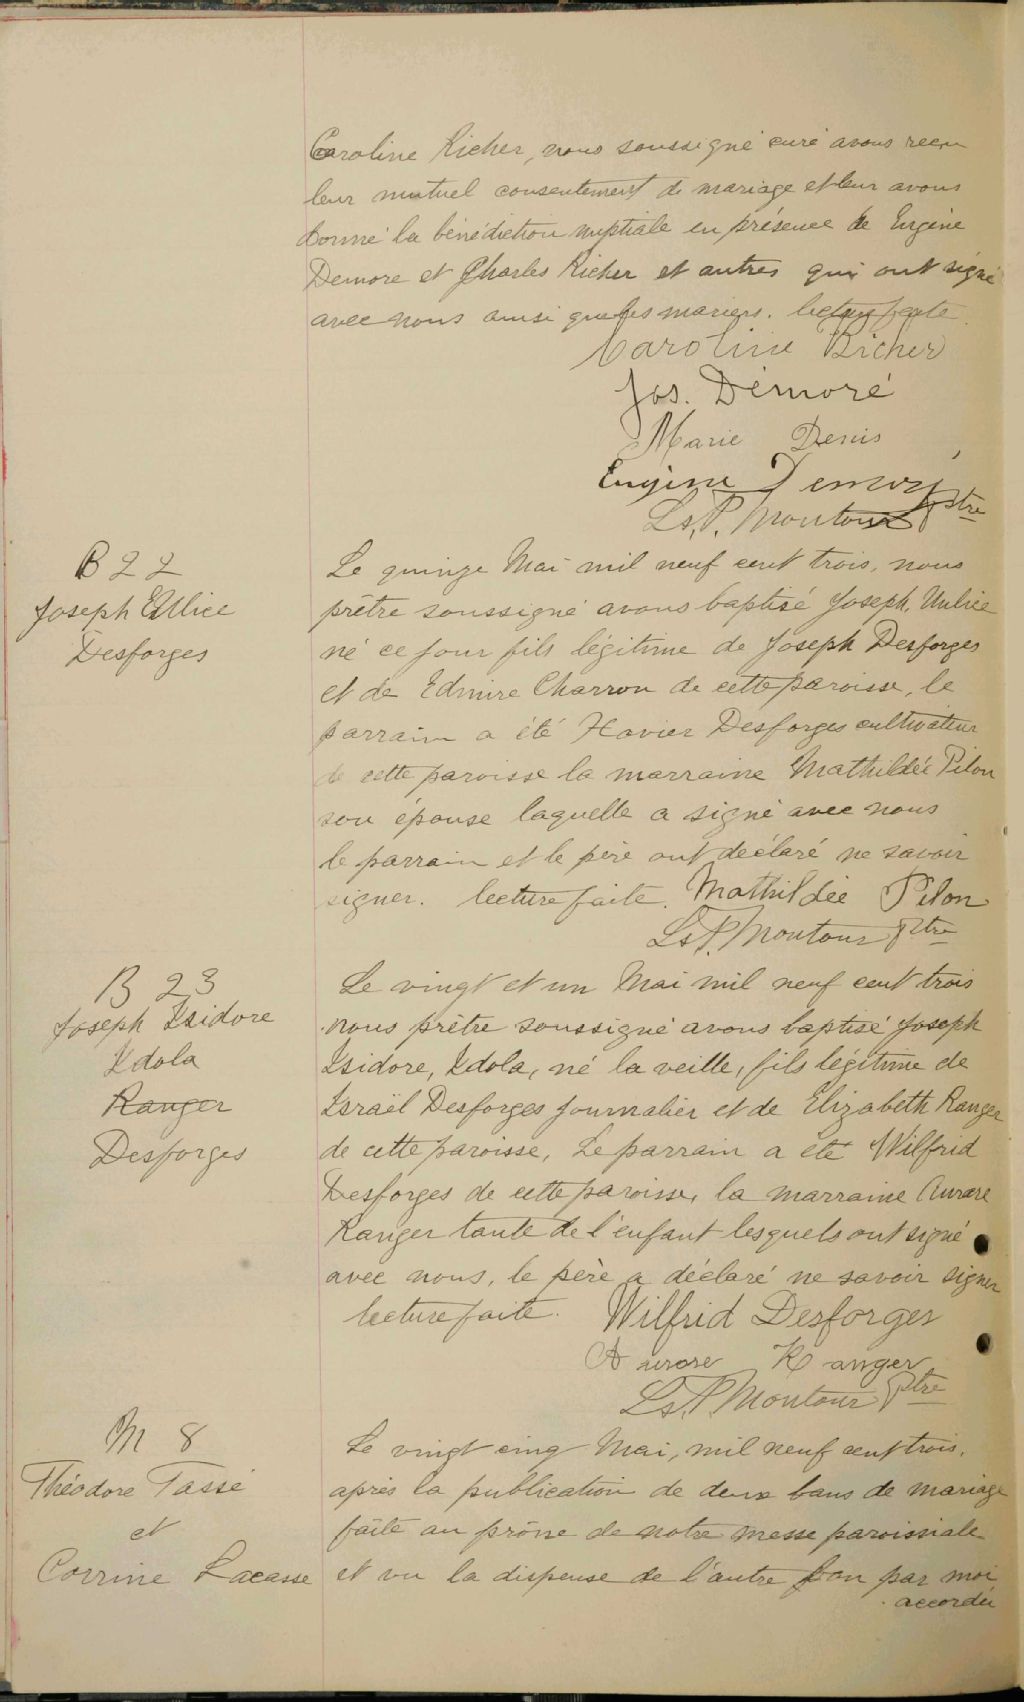 Caroline Richer, nous soussigné curé avons reçu
leur mutuel consentement de mariage et leur avons
donné la bénédiction nuptiale en présence de Eugène
Demore et Charles Richer et autres qui ont signé
avec nous ainsi que les mariers. lecture faite
Caroline Richer
Jos. Démoré
Marie Denis
Eugène Demoré
Ls. P. Montour Ptre
B 22
Joseph Ullice
Desforges
Le quinze Mai mil neuf cent trois, nous
prêtre soussigné avons baptisé Joseph,
né ce jour fils légitime de Joseph Desforges
et de Edmire Charron de cette paroisse, le
parrain a été Xavier Desforges cultivateur
de cette paroisse la marraine Mathildée Pilon
son épouse laquelle a signé avec nous
le parrain et le père ont déclaré ne savoir
signer. lecture faite. Mathildée Pilon
Ls P. Montour Ptre
B 23
Joseph Isidore
Idola
Ranger
Desforges
Le vingt et un Mai mil neuf cent trois
nous prêtre soussigné avons baptisé Joseph
Isidore, Idola, né la veille, fils légitime de
Israël Desforges journalier et de Elizabeth Ranger
de cette paroisse, Le parrain a été Wilfrid
Desforges de cette paroisse, la marraine Aurore
Ranger tante de l'enfant lesquels ont signé
avec nous, le père a déclaré ne savoir signer
lecture faite. Wilfrid Desforges
Aurore Ranger
Ls. P. Montour Ptre
M 8
Théodore Tassé
et
Corrine Lacasse
Le vingt cinq Mai, mil neuf cent trois,
après la publication de deux bans de mariage
faite au prône de notre messe paroissiale
et vu la dispense de l'autre ban par moi
accordée